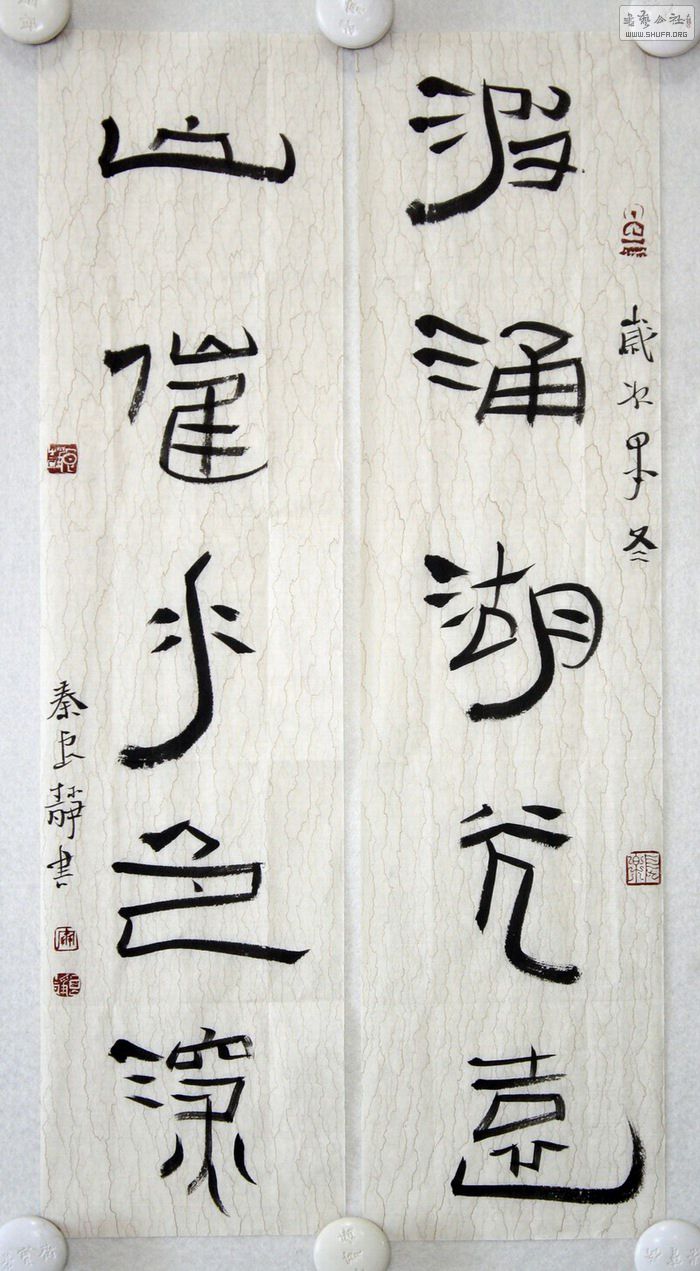 書藝公社
WWW.SHUFA.ORG
歲次甲午冬
波涌湖光遠
山催水色深
秦良靜書